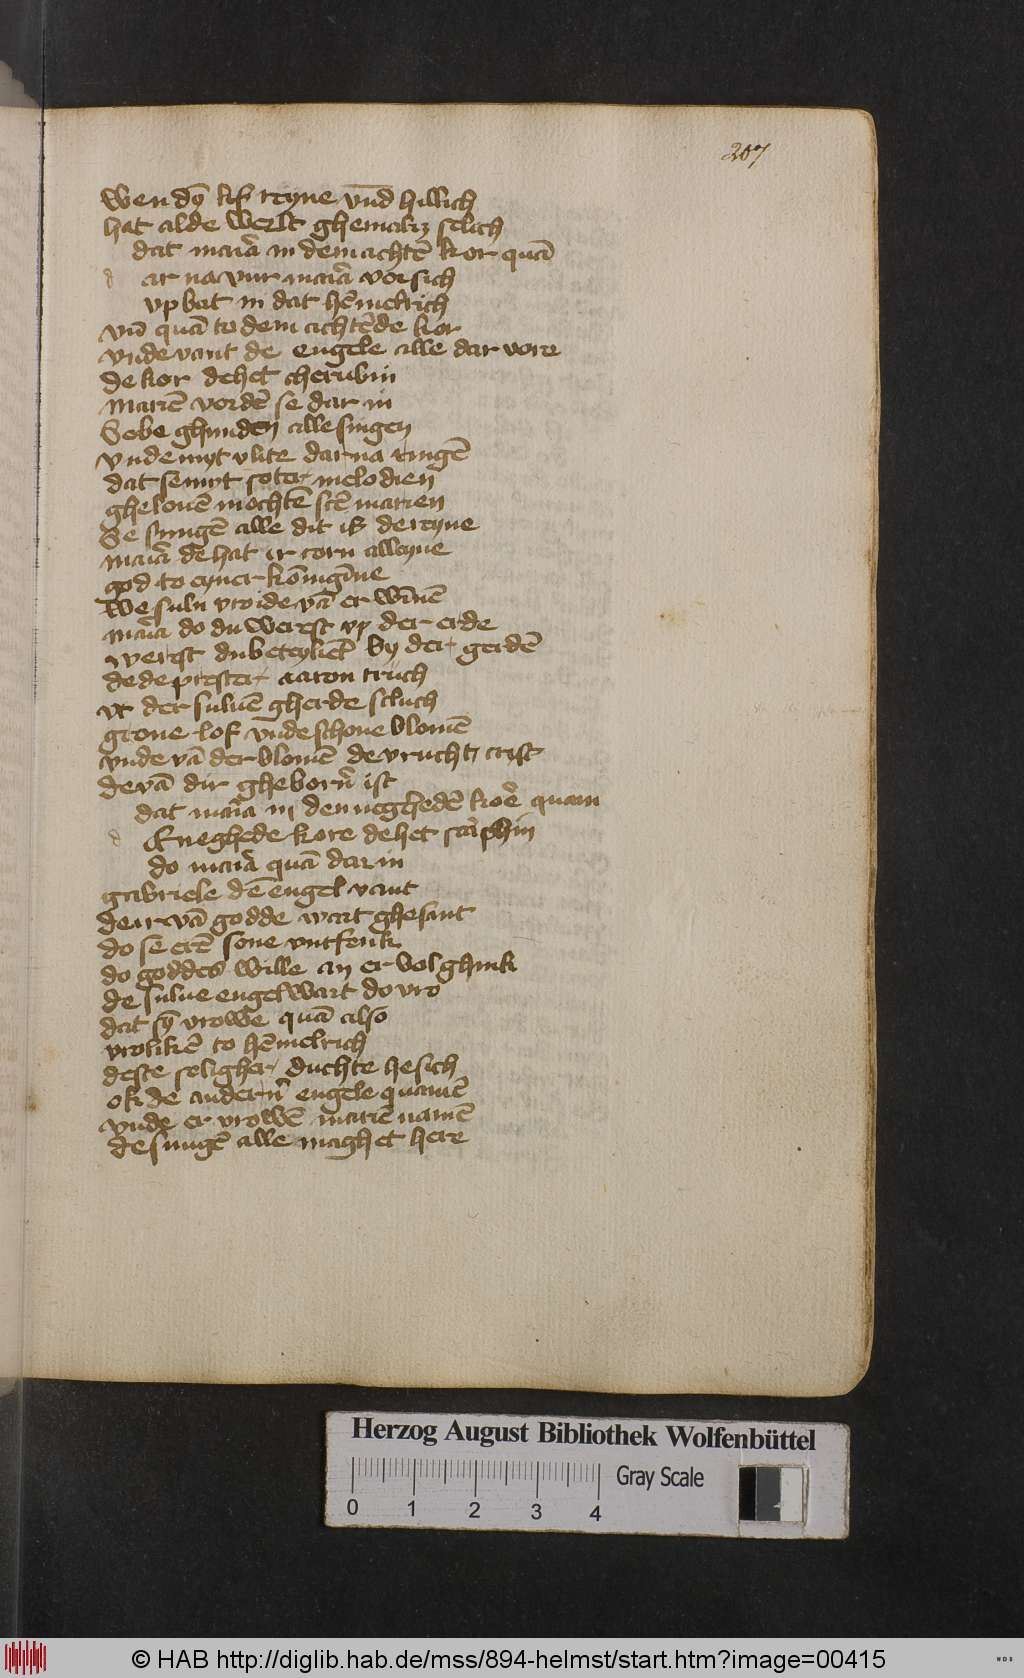 207
wen dȳ kīst reyne vn̄d hillich
hat alde werlt ghemaket selich
dat mariā in dem achtē kor quā
d ar na vur mariā vorsich
vp bat in dat hēmelrich
vn̄ quā to dem achtēde kor
vnde vant de engele alle dar vore
de kor dehet cherubin
mariē vordē se dar in
Sobe ghunden alle singen
vnde myt vlite dar na ringē
dat se myt soter melodien
ghelouē mochtē sctē marien
Se sungē alle dit is de reyne
mariā de hat ir corn alleyne
god to eyner kōnigīne
we suln vroide vā er wīnē
mariā do du werest vp der erde
werest du beteykēt by der gerdē
de de prester aaron truch
vt der suluē gherde scluch
grone lof vnde schone blomē
vnde vā der blomē de vrucht crist
de vā dir gheborn̄ ist
dat mariā in den neghedē koer quam
d e neghede kore dehet saraphin
do mariā quā dar in
gabriele dē engel vant
de ir vā godde wart ghesant
do se erē sone vntfenk
do goddes wille an er vol ghink
de sulue engel wart do vro
dat sȳ vrowe quā also
vrolikē to hēmelrich
deste seligher duchte he sich
ok de andern̄ engele quamē
vnde er vrowē mariē namē
de sungē alle maghet here
Herzog August Bibliothek Wolfenbüttel
0 1 2 3 4
Gray Scale
© HAB http://diglib.hab.de/mss/894-helmst/start.htm?image=00415